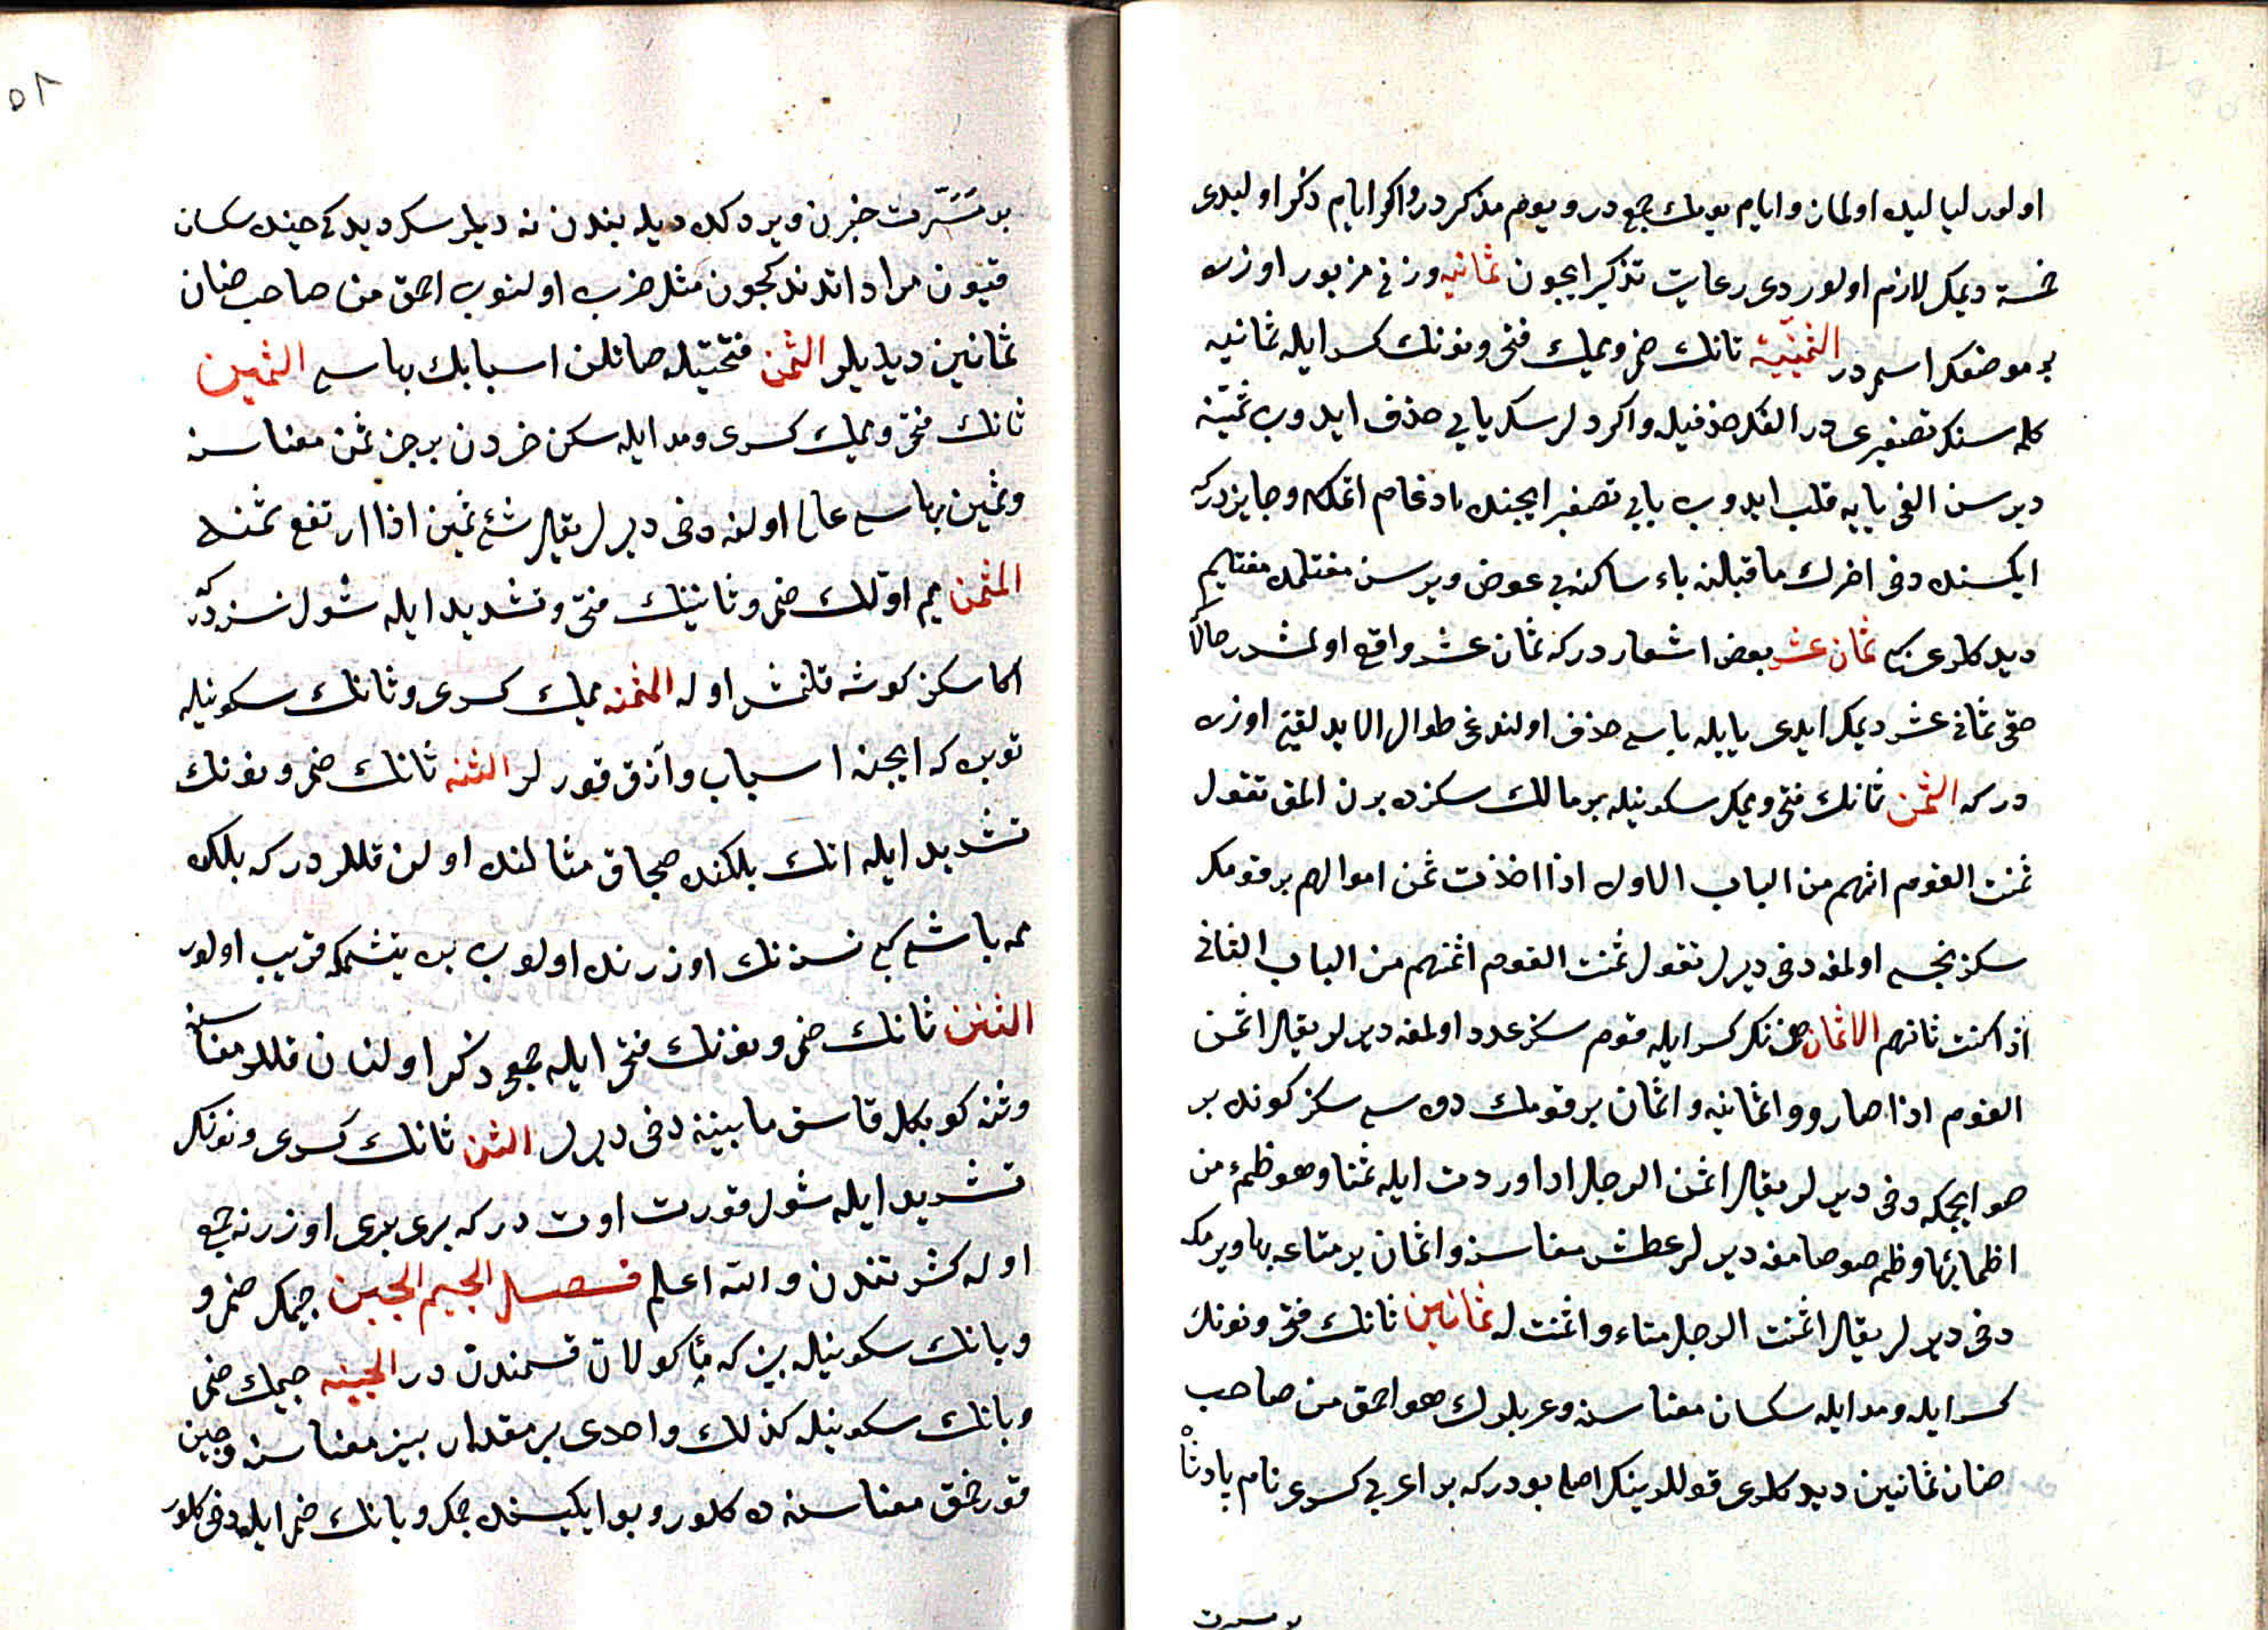 اولور ليا ليده اولمان وايام يومك جمعی در ويوم مذكر در واكر ايام ذكر اولیدی
خمسة ديمك لازم اولوردی رعايت تذكير ايچون ثمانيه وزنی مزبور اوزره
بر موضعك اسمیدر الثمينية ثانك ضمی وميمك فتحی ونونك كسرايله ثمانيه
كلمه سنك تصغيری در الفك حذفيله واكر ديلرسك يایی حذف ايدوب ثمينة
ديرسن الفی يايه قلب ايدوب يای تصغير ايچنده ادغام اتمكله وجايزدركه
ايكسنده دخی اخرك ماقبلنه ياء ساكنه يی عوض ويرسن مغتلمده مغيليم
ديدكلری كبی ثمان عشر بعض اشعاردركه ثمان عشر واقع اولمشدر حالا
حقی ثمانی عشر ديمك ايدی يايله ياسی حذف اولندغی طوال الايد لغتی اوزره
دركه الثمن ثانك فتحی وميمك سكونيله بر مالك سكزده برن المق تقول
ثمنت القوم اثمنهم من الباب الاول اذا اخذت ثمن اموالهم بر قومك
سكزنجسی اولمغه دخی ديرلر تقول ثمنت القوم اثمنهم من الباب الثانی
اذا كنت ثامنهم الاثمان همزنك كسرايله قوم سكز عدد اولمغه ديرلر يقال اثمن
القوم اذا صاروو اثمانيه واثمان بر قومك دوه سی سكز كونده بر
صو ايچمكه دخی ديرلر يقال اثمن الرجل اذا وردت ابله ثمنا وهو ظمء من
اظمائها وظمء صوصامغه ديرلر عطش معناسنه واثمان بر متاعه بها ويرمكه
دخی ديرلر يقال اثمنت الرجل متاعه واثمنت له ثمانين ثانك فتحی ونونك
كسرايله ومد ايله سكسان معناسنه وعربلرك هو احمق من صاحب
ضان ثمانين ديدكلری قوللرينك اصلی بودركه بر اعرابی كسری نام پادشاه
بر مسرت
۵۲
بر مسرت خبرن ويردكده ديله بندن نه ديلرسك ديدكی حينده سكسان
قيون مراد اتدندكچون مثل ضرب اولنوب احمق من صاحب ضان
ثمانين ديديلر الثمن فتحتيله صاتلن اسبابك بهاسی الثمين
ثانك فتحی وميمك كسری ومد ايله سكز جزدن بر جز ثمن معناسنه
وثمين بهاسی عالی اولنه دخی ديرلر يقال شیء ثمين اذا ارتفع ثمنه
المثمن ميم اولك ضمی وثانينك فتحی وتشديد ايله شول نسنه دركه
اكا سكز كوشه قلنمش اوله المثمنه ميمك كسری وثانك سكونيله
توبره كه ايچنه اسباب وآزق قورلر الثنه ثانك ضمی ونونك
تشديد ايله اتك بلكنده صچاق مثالنده اولن قللردركه بلكده
ممه باشی كبی نسنه نك اوزرنده اولوب يره يتشمكه قريب اولور
الثنن ثانك ضمی ونونك فتحی ايله جمعی ذكر اولنان قللر معناسنه
وثنه كوبكله قاسق مابينه دخی ديرلر الثن ثانك كسری ونونك
تشديد ايله شول قوری اوت دركه بری بری اوزرنه جمع
اوله كثرتندن والله اعلم فصل الجيم الجبن جيمك ضم و
وبانك سكونيله پنير كه مأكولات قسمندن در الجبنه جيمك ضمی
وبانك سكونيله كذلك واحدی بر مقدار پينر معناسنه وجبن
قورخق معناسنه ده كلور وبو ايكيسنده جيمك وبانك ضم ايله دخی كلور